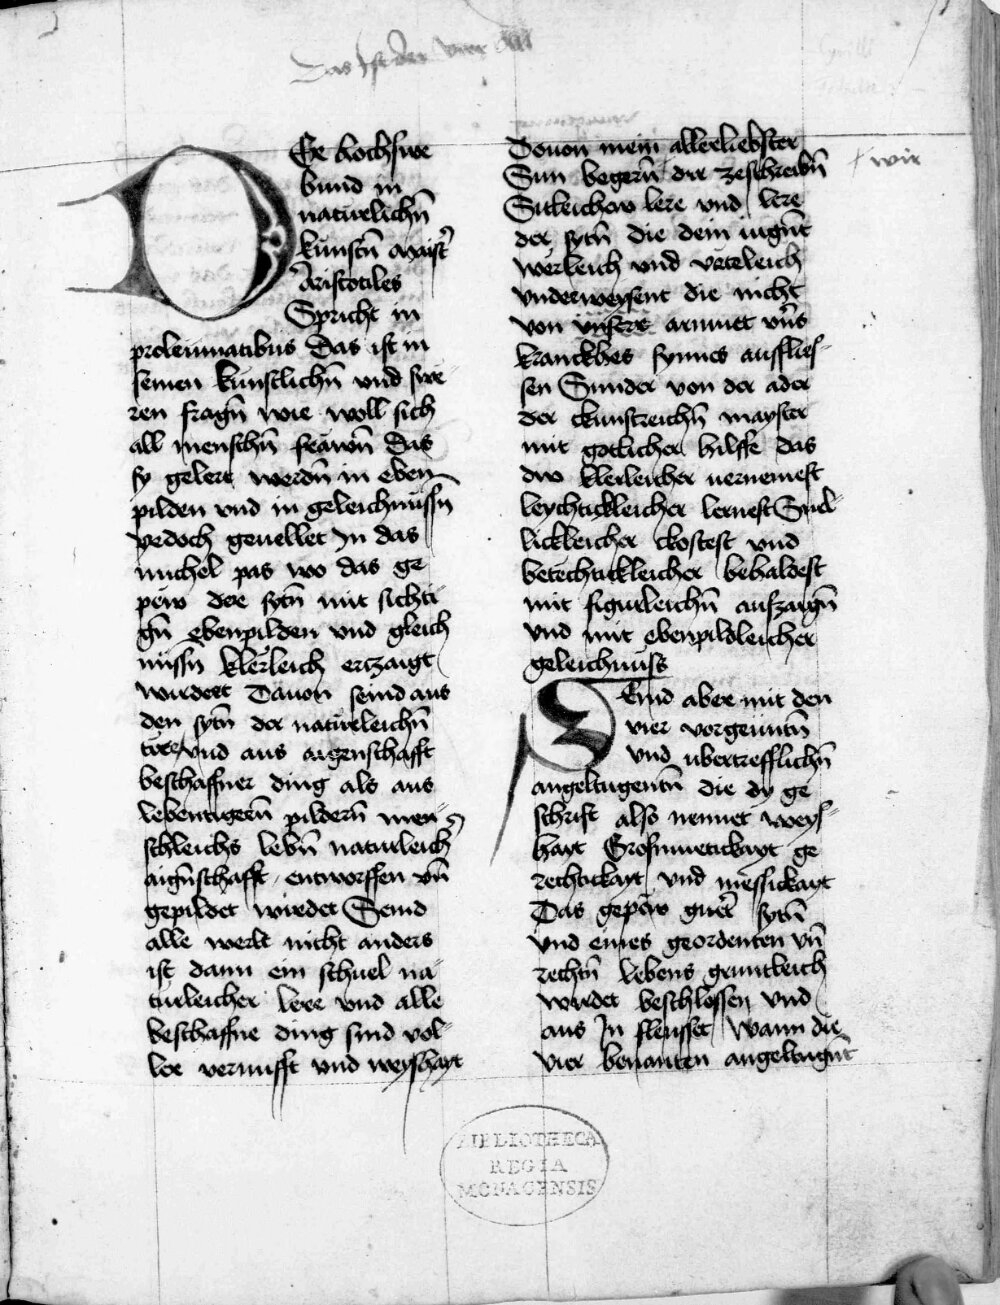 Das Ist der
DEr hochswe
bund in
natürlichn̄
kunstn̄ maist̄
Aristotiles
Spricht in
proleumatibus Das ist in
seinen kunstlichn̄ vnd swe
ren fragn̄ wie woll sich
all menschn̄ frawn̄ das
sy gelert werdn̄ in eben
pilden vnd in geleichnussn̄
yedoch geuellet In das
michel pas wo das ge
pew der sytn̄ mit sichti
gn̄ ebenpilden vnd gleich
nussn̄ klerleich ertzaigt
wirdeet Dauon seind aus
den sytn̄ der naturleichn̄
tier vnd aus aigenschafft
beschaffner ding als aus
lebentigeen̄ pildern̄ men
schleichs lebn̄ naturleich̄
aign̄schafft entworffen vn̄
gepildet wirdet Seind
alle werlt nicht anders
ist dann ein schuel na
turleicher lere vnd alle
beschaffne ding sind vol
ler vernufft vnd weyshayt
Douon mein allerliebster
Sun begern̄ dir zeschreibn̄
wir
Sitleicher lere vnd lere
der sytn̄ die dein iugn̄t
werleich vnd vrteleich
vnderweysent die nicht
von vnsers armuet vn̄s
kranckhes synnes ausflies
sen Sunder von der ader
der ckunstreichn̄ mayster
mit gotlicher hilffe das
dw klerleicher vernemest
leychtickleicher lernest Suel
lickleicher ckostest vnd
betechtickleicher behaldest
mit figurleichn̄ aufzaign̄
vnd mit ebenpildleicher
geleichnuss
SEind aber mit den
vier vorgeuntn̄
vnd ubertrefflichn̄
angeltugentn̄ die dy ge
schrift also nennet weys
hayt Grosmuetickayt ge
rechtickayt vnd messickayt
Das gepew guet̄ sytn̄
vnd eines geordenten vn̄
rechtn̄ lebens gruntleich
wirdet beschlossen vnd
aus In fleusset Wann die
vier benanten angeltugn̄t
BIBLIOTHECA
REGIA
MONACENSIS